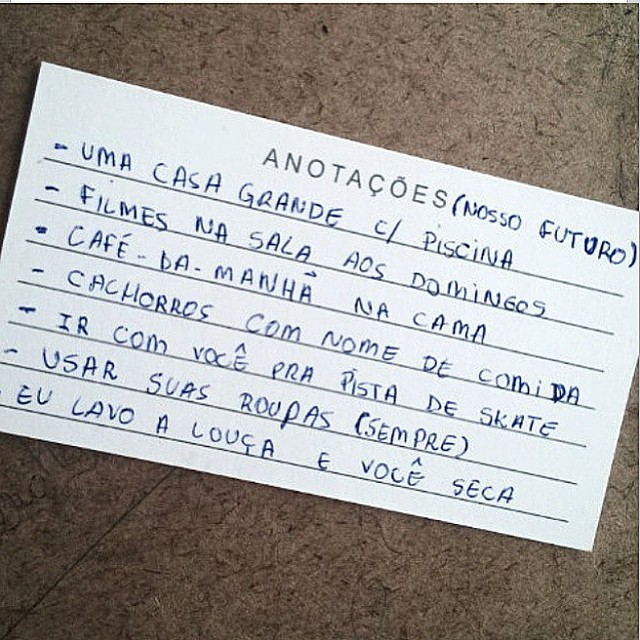 ANOTAÇÕES (NOSSO FUTURO)
- UMA CASA GRANDE C/ PISCINA
- FILMES NA SALA AOS DOMINGOS
- CAFÉ-DA-MANHÃ NA CAMA
- CACHORROS COM NOME DE COMIDA
- IR COM VOCÊ PRA PISTA DE SKATE
- USAR SUAS ROUPAS (SEMPRE)
- EU LAVO A LOUÇA E VOCÊ SECA